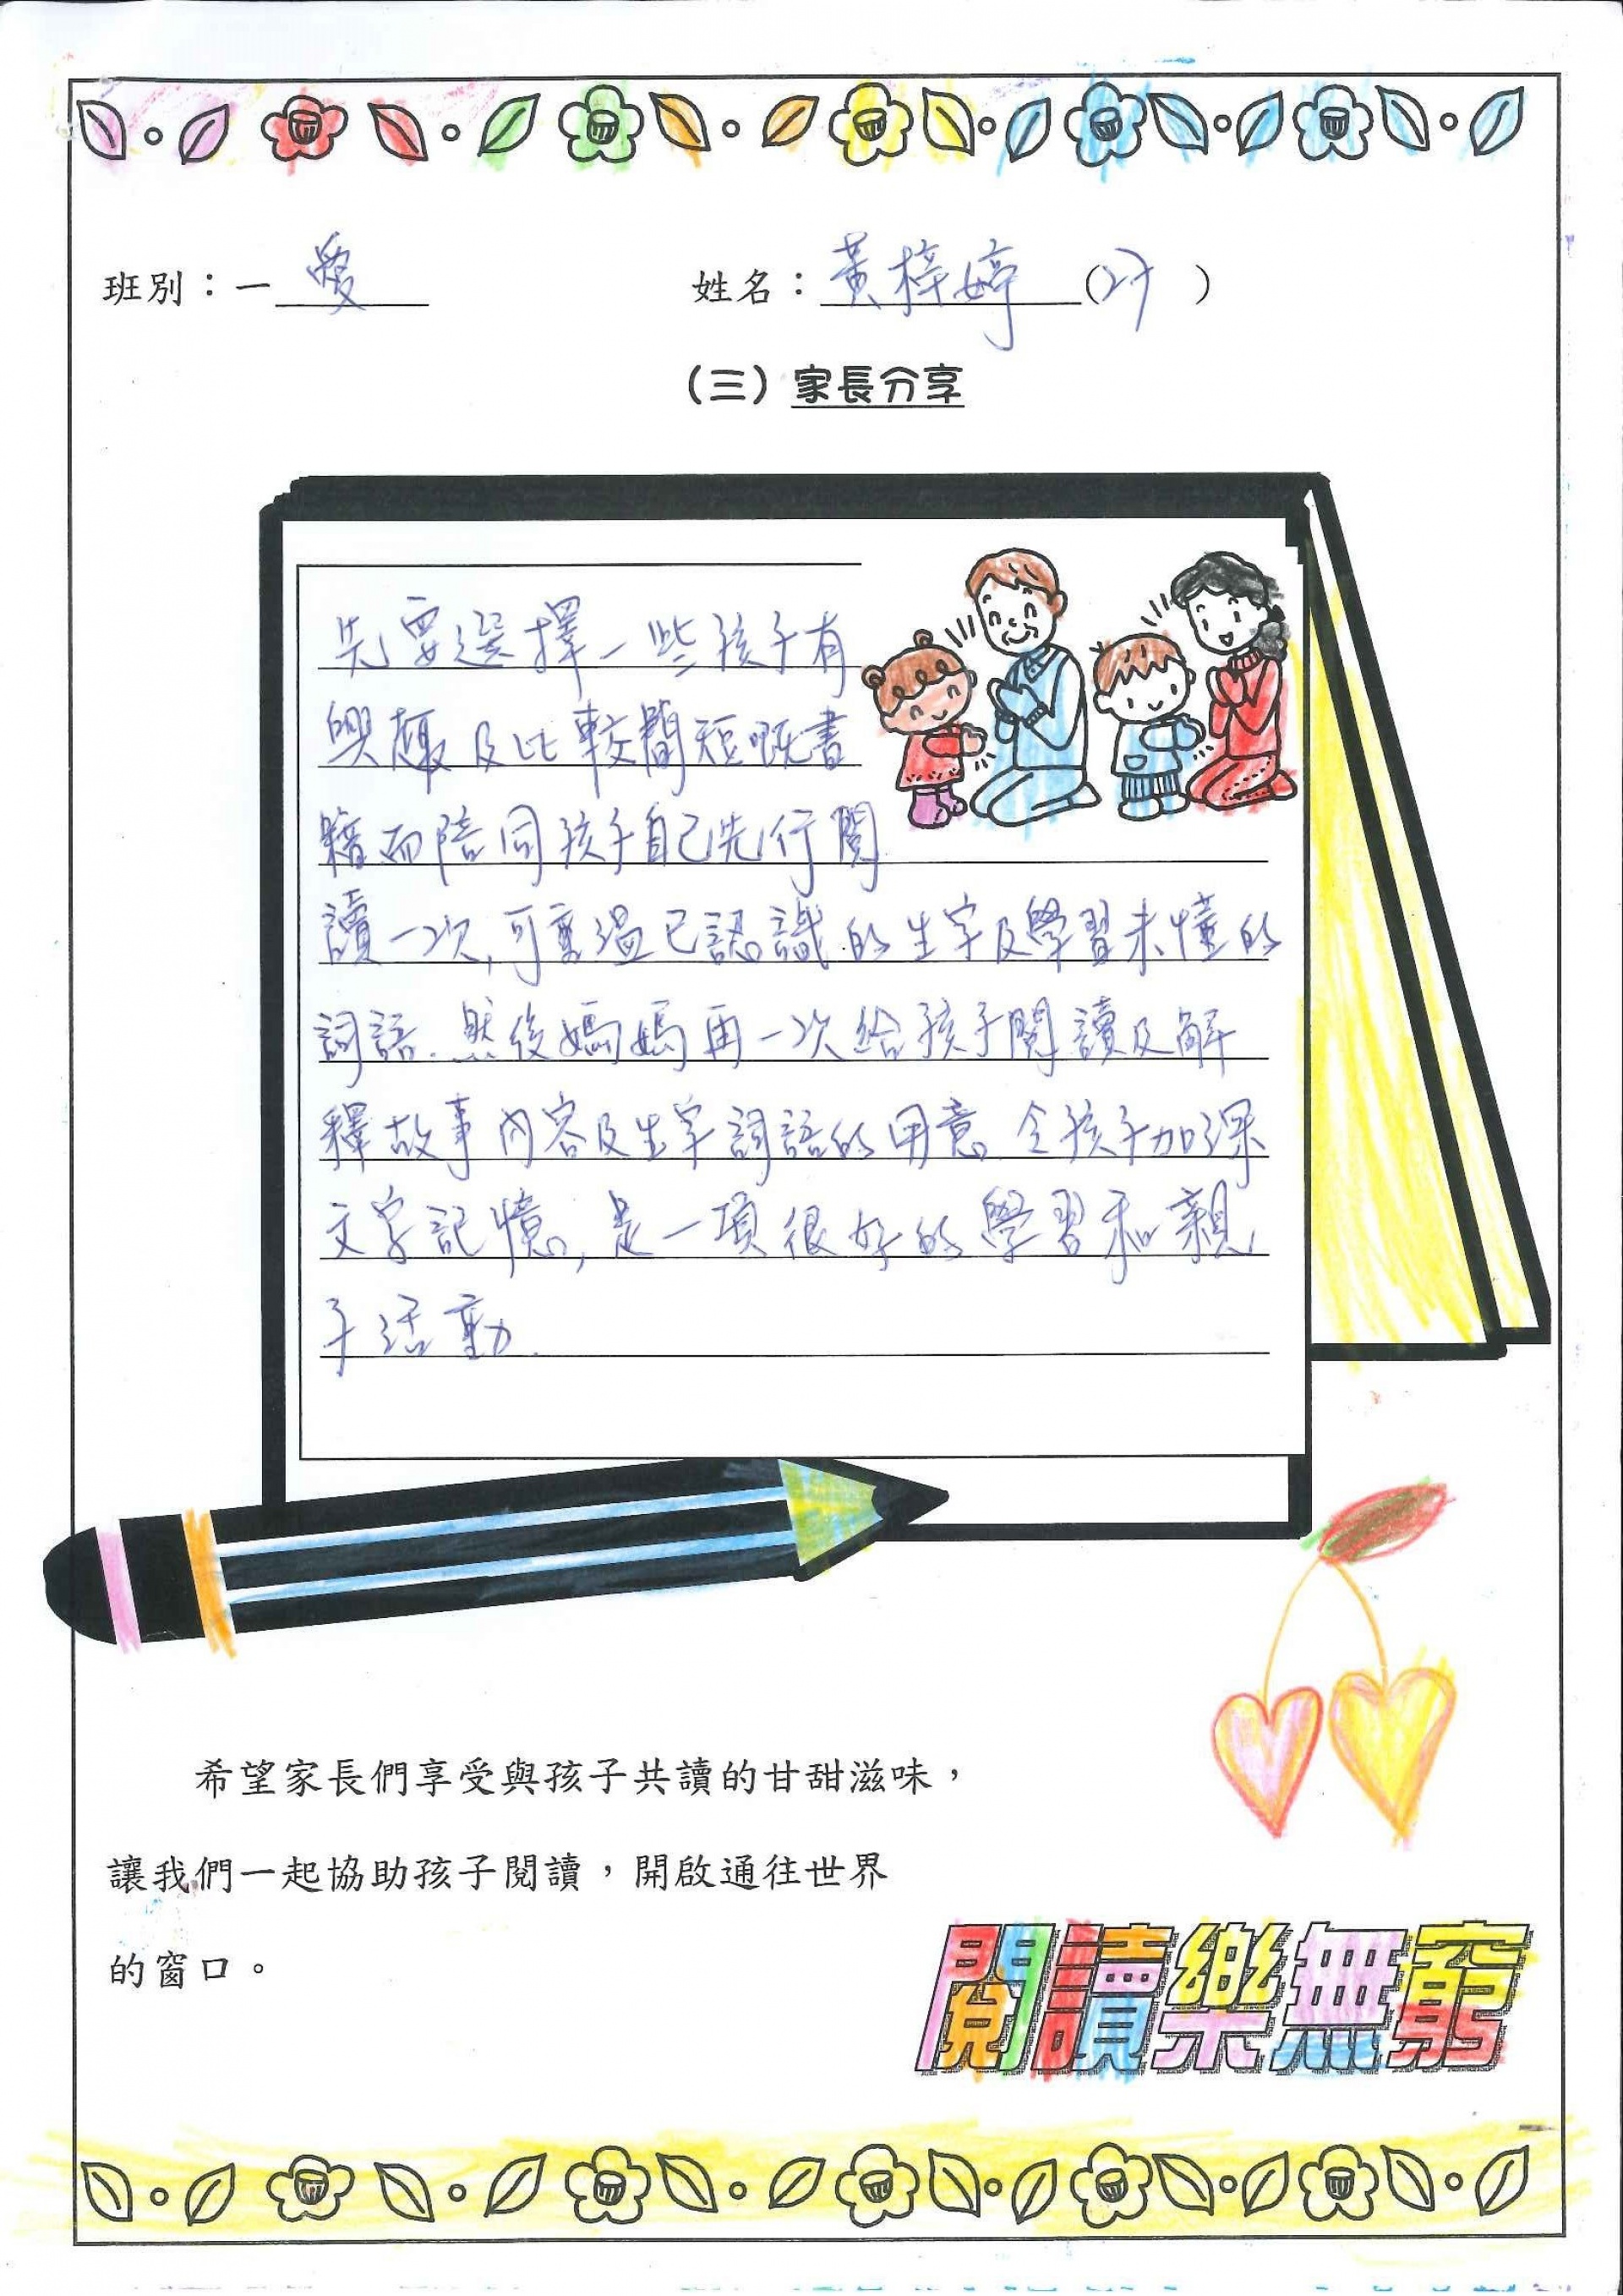 班別：一愛 姓名：黃梓婷（27）
（三）家長分享
先要選擇一些孩子有
興趣及比較簡短嘅書
籍而陪同孩子自己先行閱
讀一次，可重溫已認識的生字及學習未懂的
詞語．然後媽媽再一次給孩子閱讀及解
釋故事內容及生字詞語的用意．令孩子加深
文字記憶，是一項很好的學習和親
子活動．
希望家長們享受與孩子共讀的甘甜滋味，
讓我們一起協助孩子閱讀，開啟通往世界
的窗口。
閱讀樂無窮